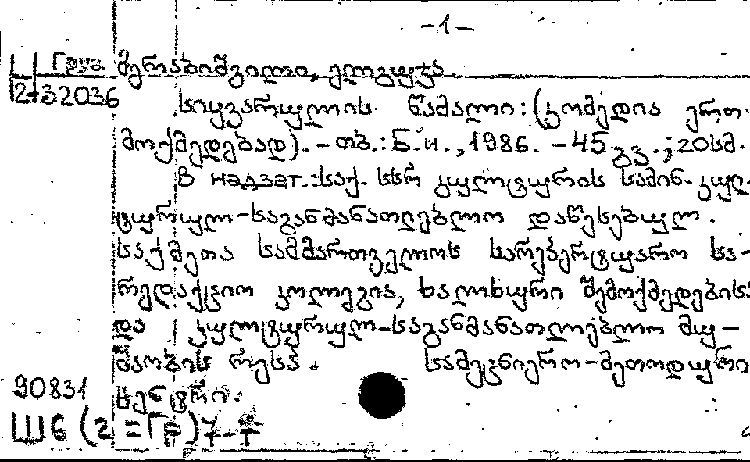 -1-
Ц Груз. მერაბიშვილი, ელგუჯა
2-32036
სიყვარულის წამალი: (კომედია ერთ
მოქმედებად). - თბ.: Б.и., 1986. - 45 გვ.; 20სმ.
В надзаг.: საქ. სსრ კულტურის სამინ. კულ-
ტურულ-საგანმანათლებლო დაწესებულ.
საქმეთა სამმართველოს სარეპერტუარო სა-
რედაქციო კოლეგია, ხალხური შემოქმედების
და კულტურულ-საგანმანათლებლო მუ-
შაობის რესპ. სამეცნიერო-მეთოდური
ცენტრი.
90831
Ш6(2=Гр)7-